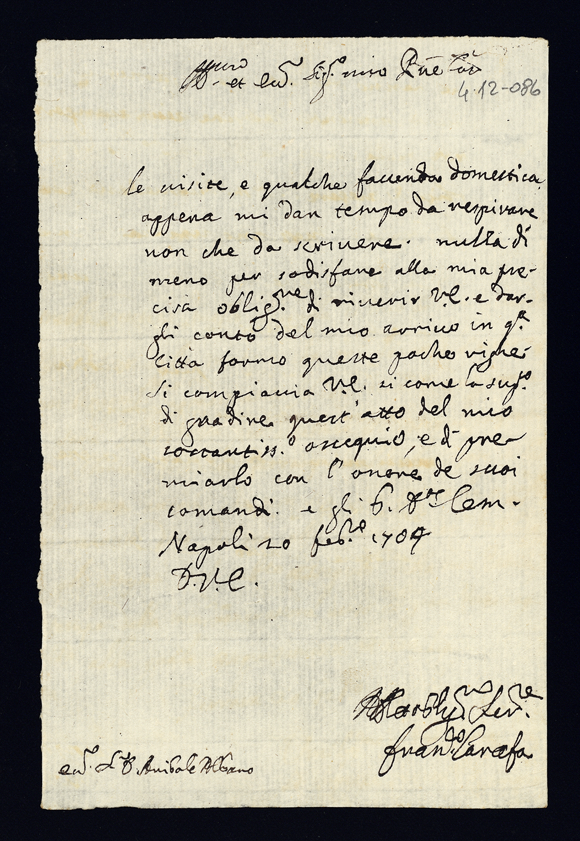 Ill.mo et Ecc. Sig.e mio P.ne Col.
4.12-086
le visite, e qualche faccenda domestica
appena mi dan tempo da respirare
non che da scrivere. nulla di
meno per sodisfare alla mia pre-
cisa oblig.ne di riverir V.E. e dar-
gli conto del mio arrivo in q.ta
Città formo queste poche righe
si compiacia V.E. si come la sup.o
di gradire quest'atto del mio
ossequio, e di pre-
miarlo con l'onore de suoi
comandi. e gli b.
Napoli 20 feb.o 1704
D.V.E.
Ser.re
Fran.co Carafa
Ecc. Anibale Albano